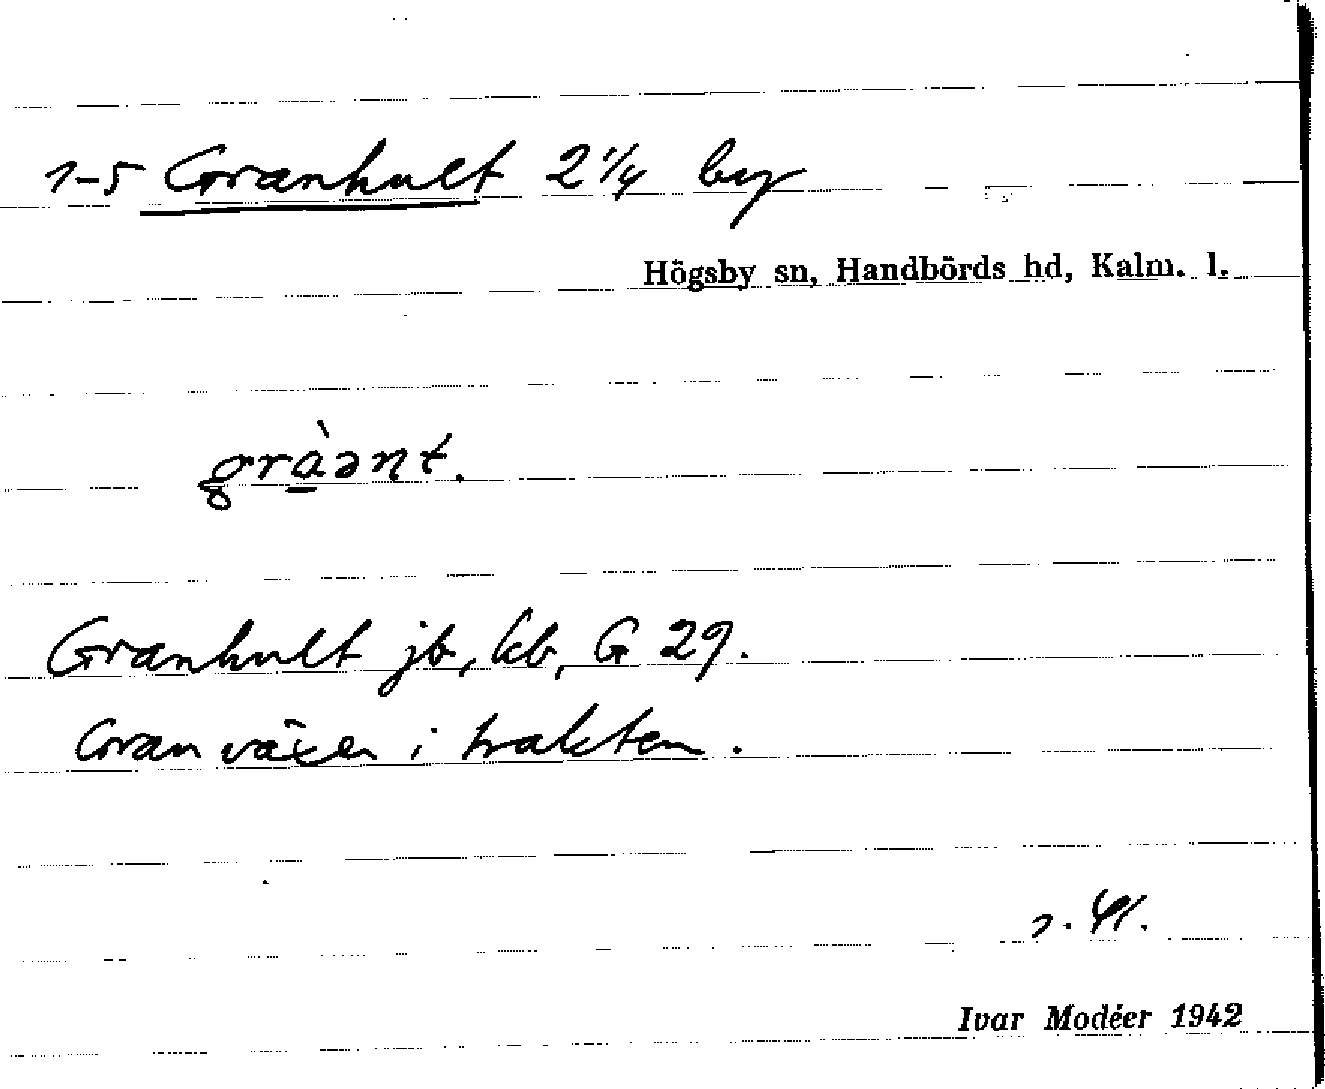 1-5 Granhult 2 1/4 by
Högsby sn, Handbörds hd, Kalm. l.
gràənt.
Granhult jb, kb, G 29.
Gran växer i trakten.
Ivar Modéer 1942